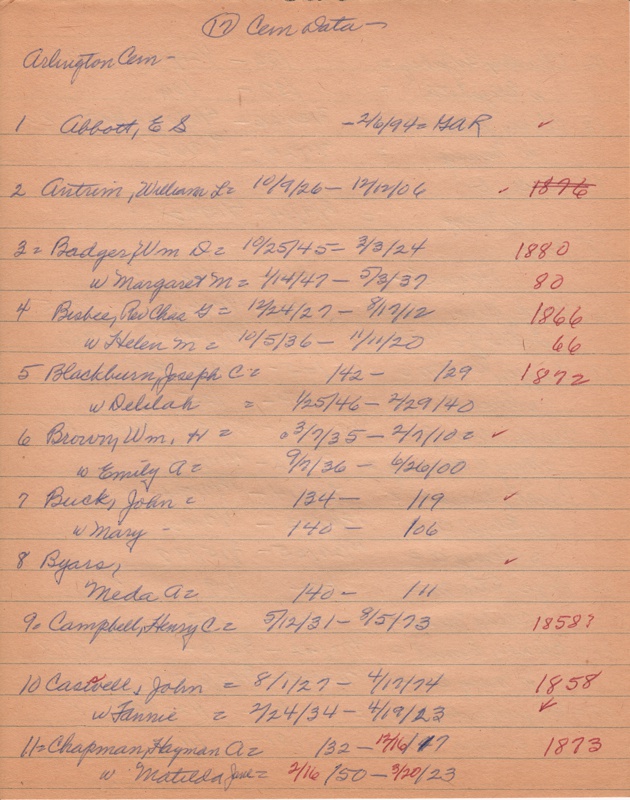 (17) Cem Data -
Arlington Cem -
1 Abbott, E S - 2/6/94 = GAR ✓
2 Antrim, William L = 10/9/26 - 12/12/06 ✓ 1876
3 = Badger, Wm D = 10/25/45 = 3/3/24 1880
w Margaret M = 1/14/47 - 5/3/37 80
4 Bisbee, Rev Chas G = 12/24/27 - 8/17/12 1866
w Helen M = 10/5/36 - 11/11/20 66
5 Blackburn, Joseph C = /42 - /29 1872
w Delilah = 1/25/46 - 2/29/40
6 Brown, Wm, H = 3/7/35 - 2/7/10 = ✓
w Emily A = 9/7/36 - 6/26/00
7 Buck, John = /34 - /19 ✓
w Mary - /40 - /06
8 Byars, ✓
Meda A = /40 - /11
9 = Campbell, Henry C = 5/12/31 - 8/5/73 1858?
10 Castwell, John = 8/1/27 - 4/17/74 1858
w Fannie = 2/24/34 - 4/19/23 ✓
11 = Chapman, Hayman A = /32 - 12/16/17 1873
w Matilda Jane = 2/16/50 - 3/20/23